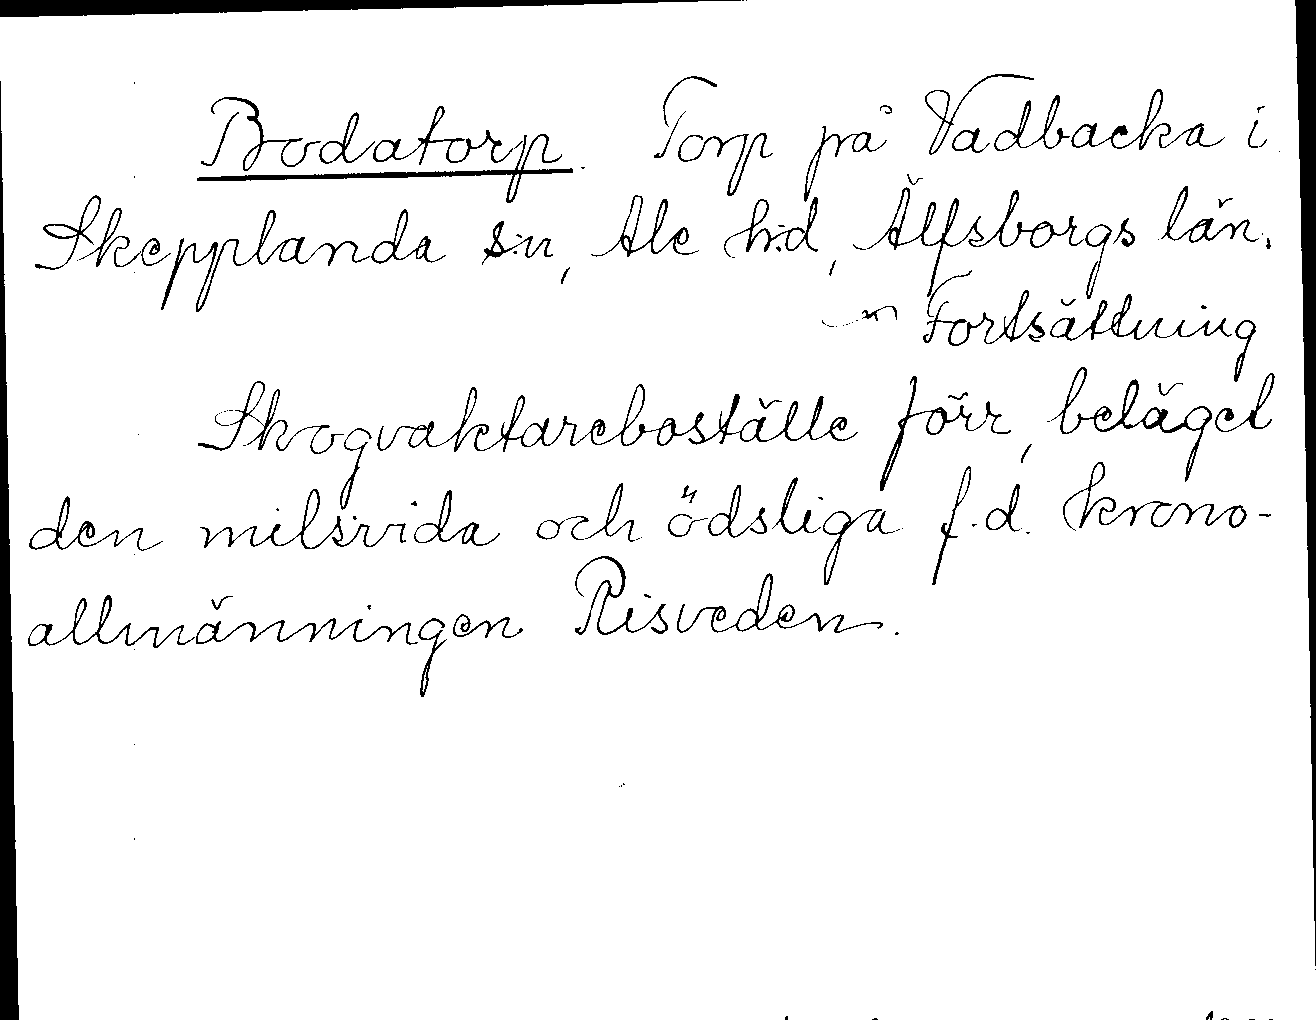 Bodatorp. Torp på Vadbacka i
Skepplanda s:n, Ale h:d, Älfsborgs län.
Fortsättning
Skogvaktareboställe förr, beläget
den milsvida och ödsliga f.d. krono-
allmänningen Risveden.